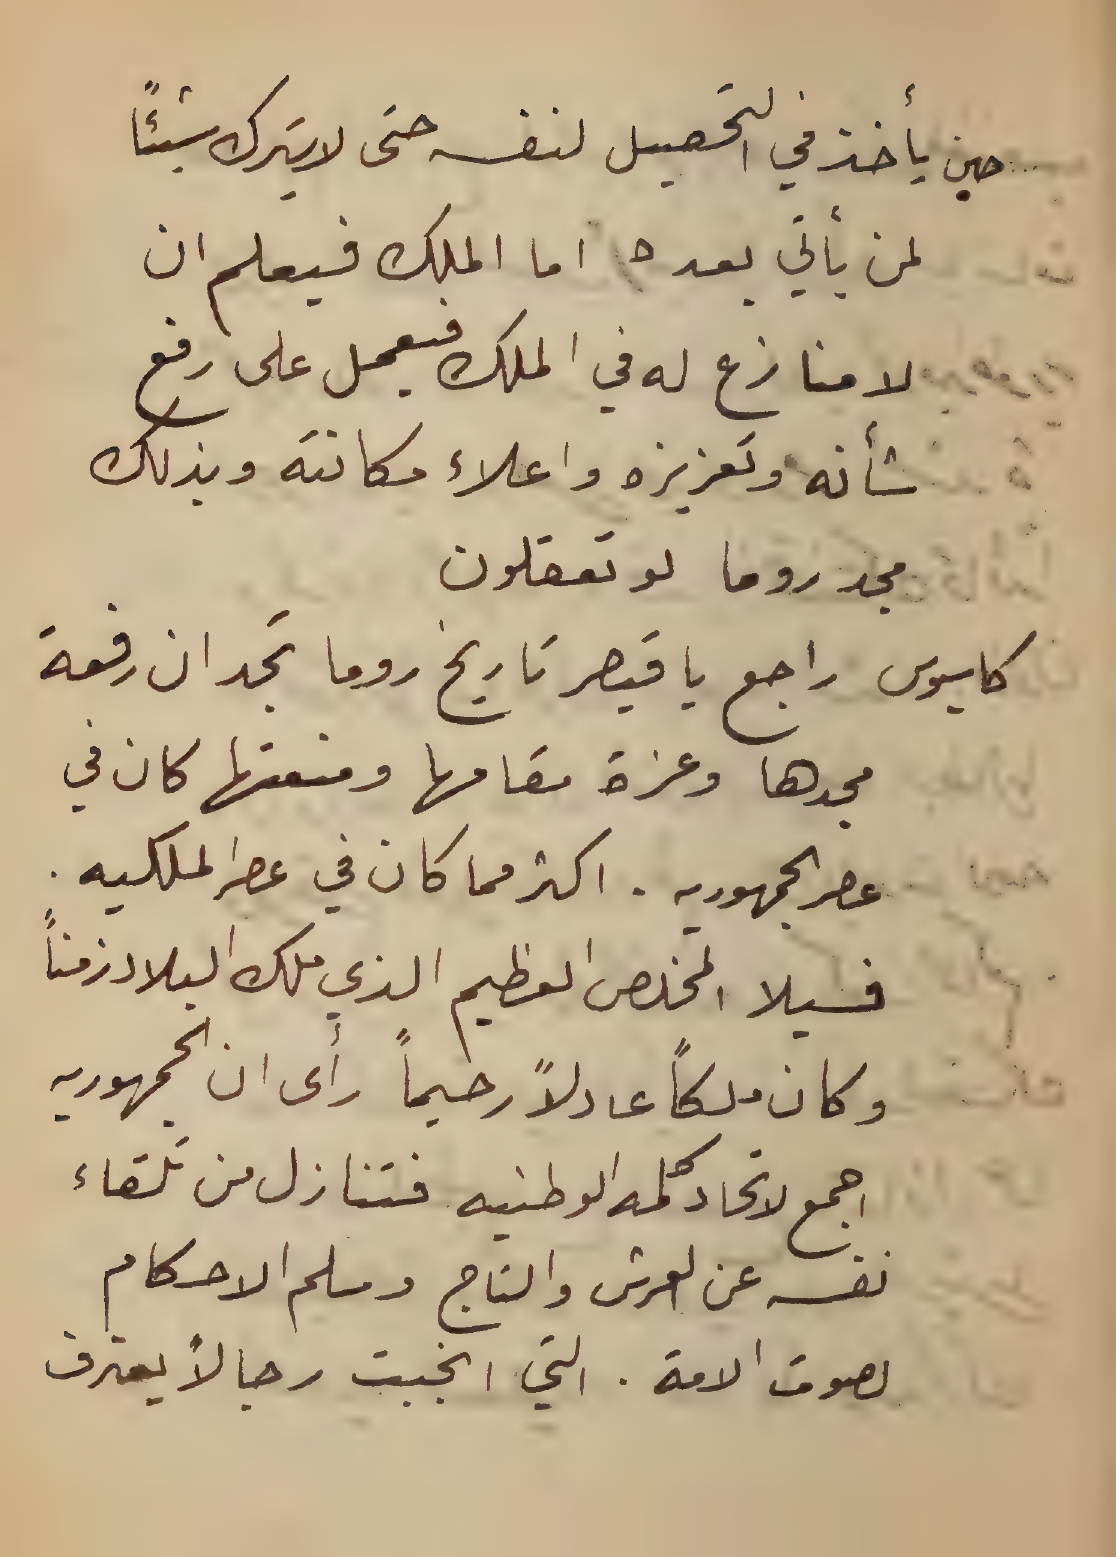 حين يأخذ في التحصيل لنفسه حتى لا يترك شيئاً
لمن يأتي بعده اما الملك فيعلم ان
لا منازع له في الملك فيعمل على رفع
شأنه وتعزيزه واعلاء مكانته وبذلك
مجد روما لو تعقلون
كاسيوس راجع يا قيصر تاريخ روما تجد ان رفعة
مجدها وعزة مقامها ومنعتها كان في
عصر الجمهوريه . اكثر مما كان في عصر الملكيه .
فسيلا المخلص العظيم الذي ملك البلاد زمناً
وكان ملكاً عادلاً رحيماً رأى ان الجمهوريه
اجمع لاتحاد كلمه الوطنيه فتنازل من تلقاء
نفسه عن العرش والتاج وسلم الاحكام
لصوت الامة . التي انجبت رجالاً يعترف